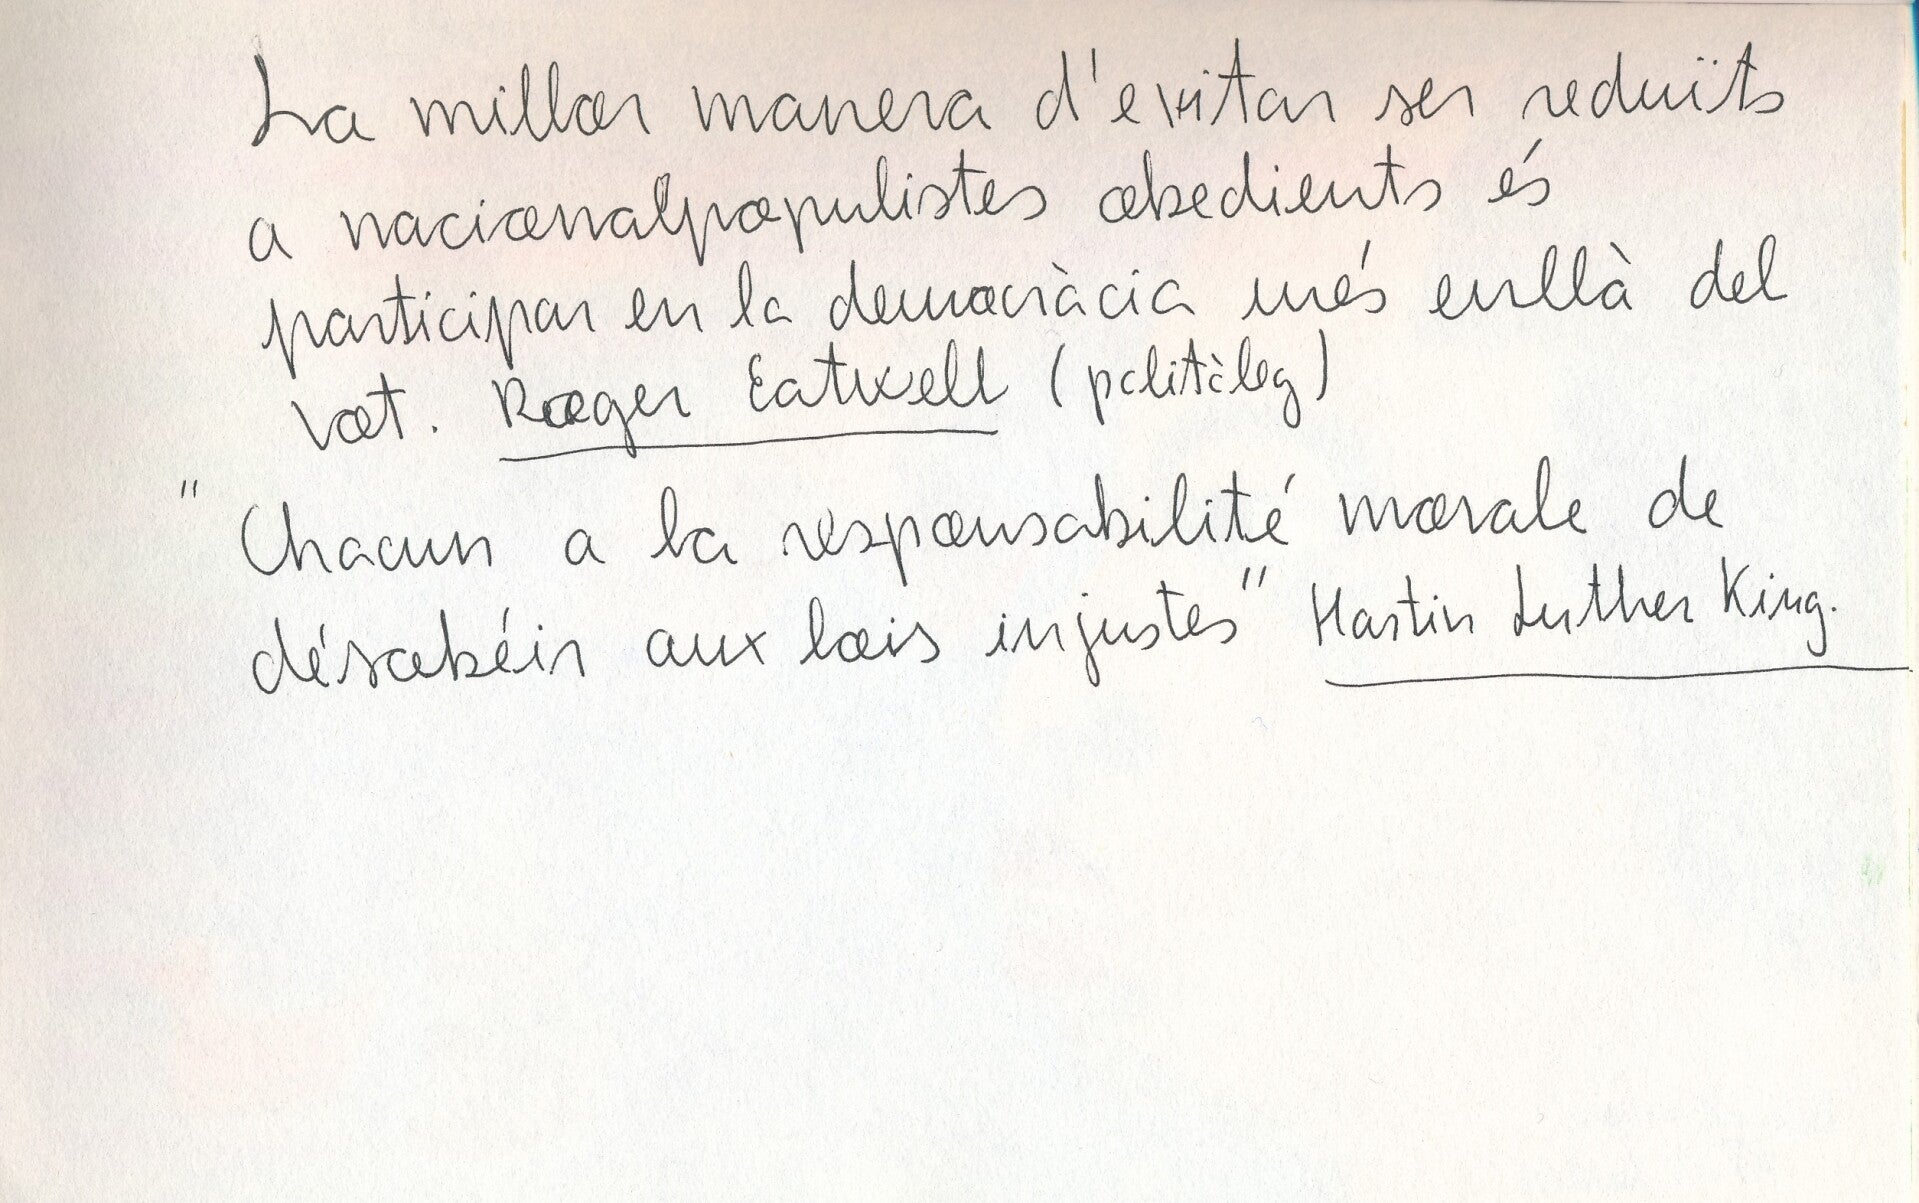 La millor manera d'evitar ser reduïts
a nacionalpopulistes obedients és
participar en la democràcia més enllà del
vot. Roger Eatwell (politòleg)
"Chacun a la responsabilité morale de
désobéir aux lois injustes" Martin Luther King.